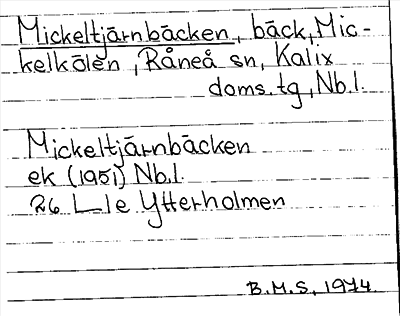 Mickeltjärnbäcken, bäck, Mic-
kelkölen, Råneå sn, Kalix
doms. tg, Nb.l.
Mickeltjärnbäcken
ek (1951) Nb.l.
26 L-le Ytterholmen
B.M.S. 1974.